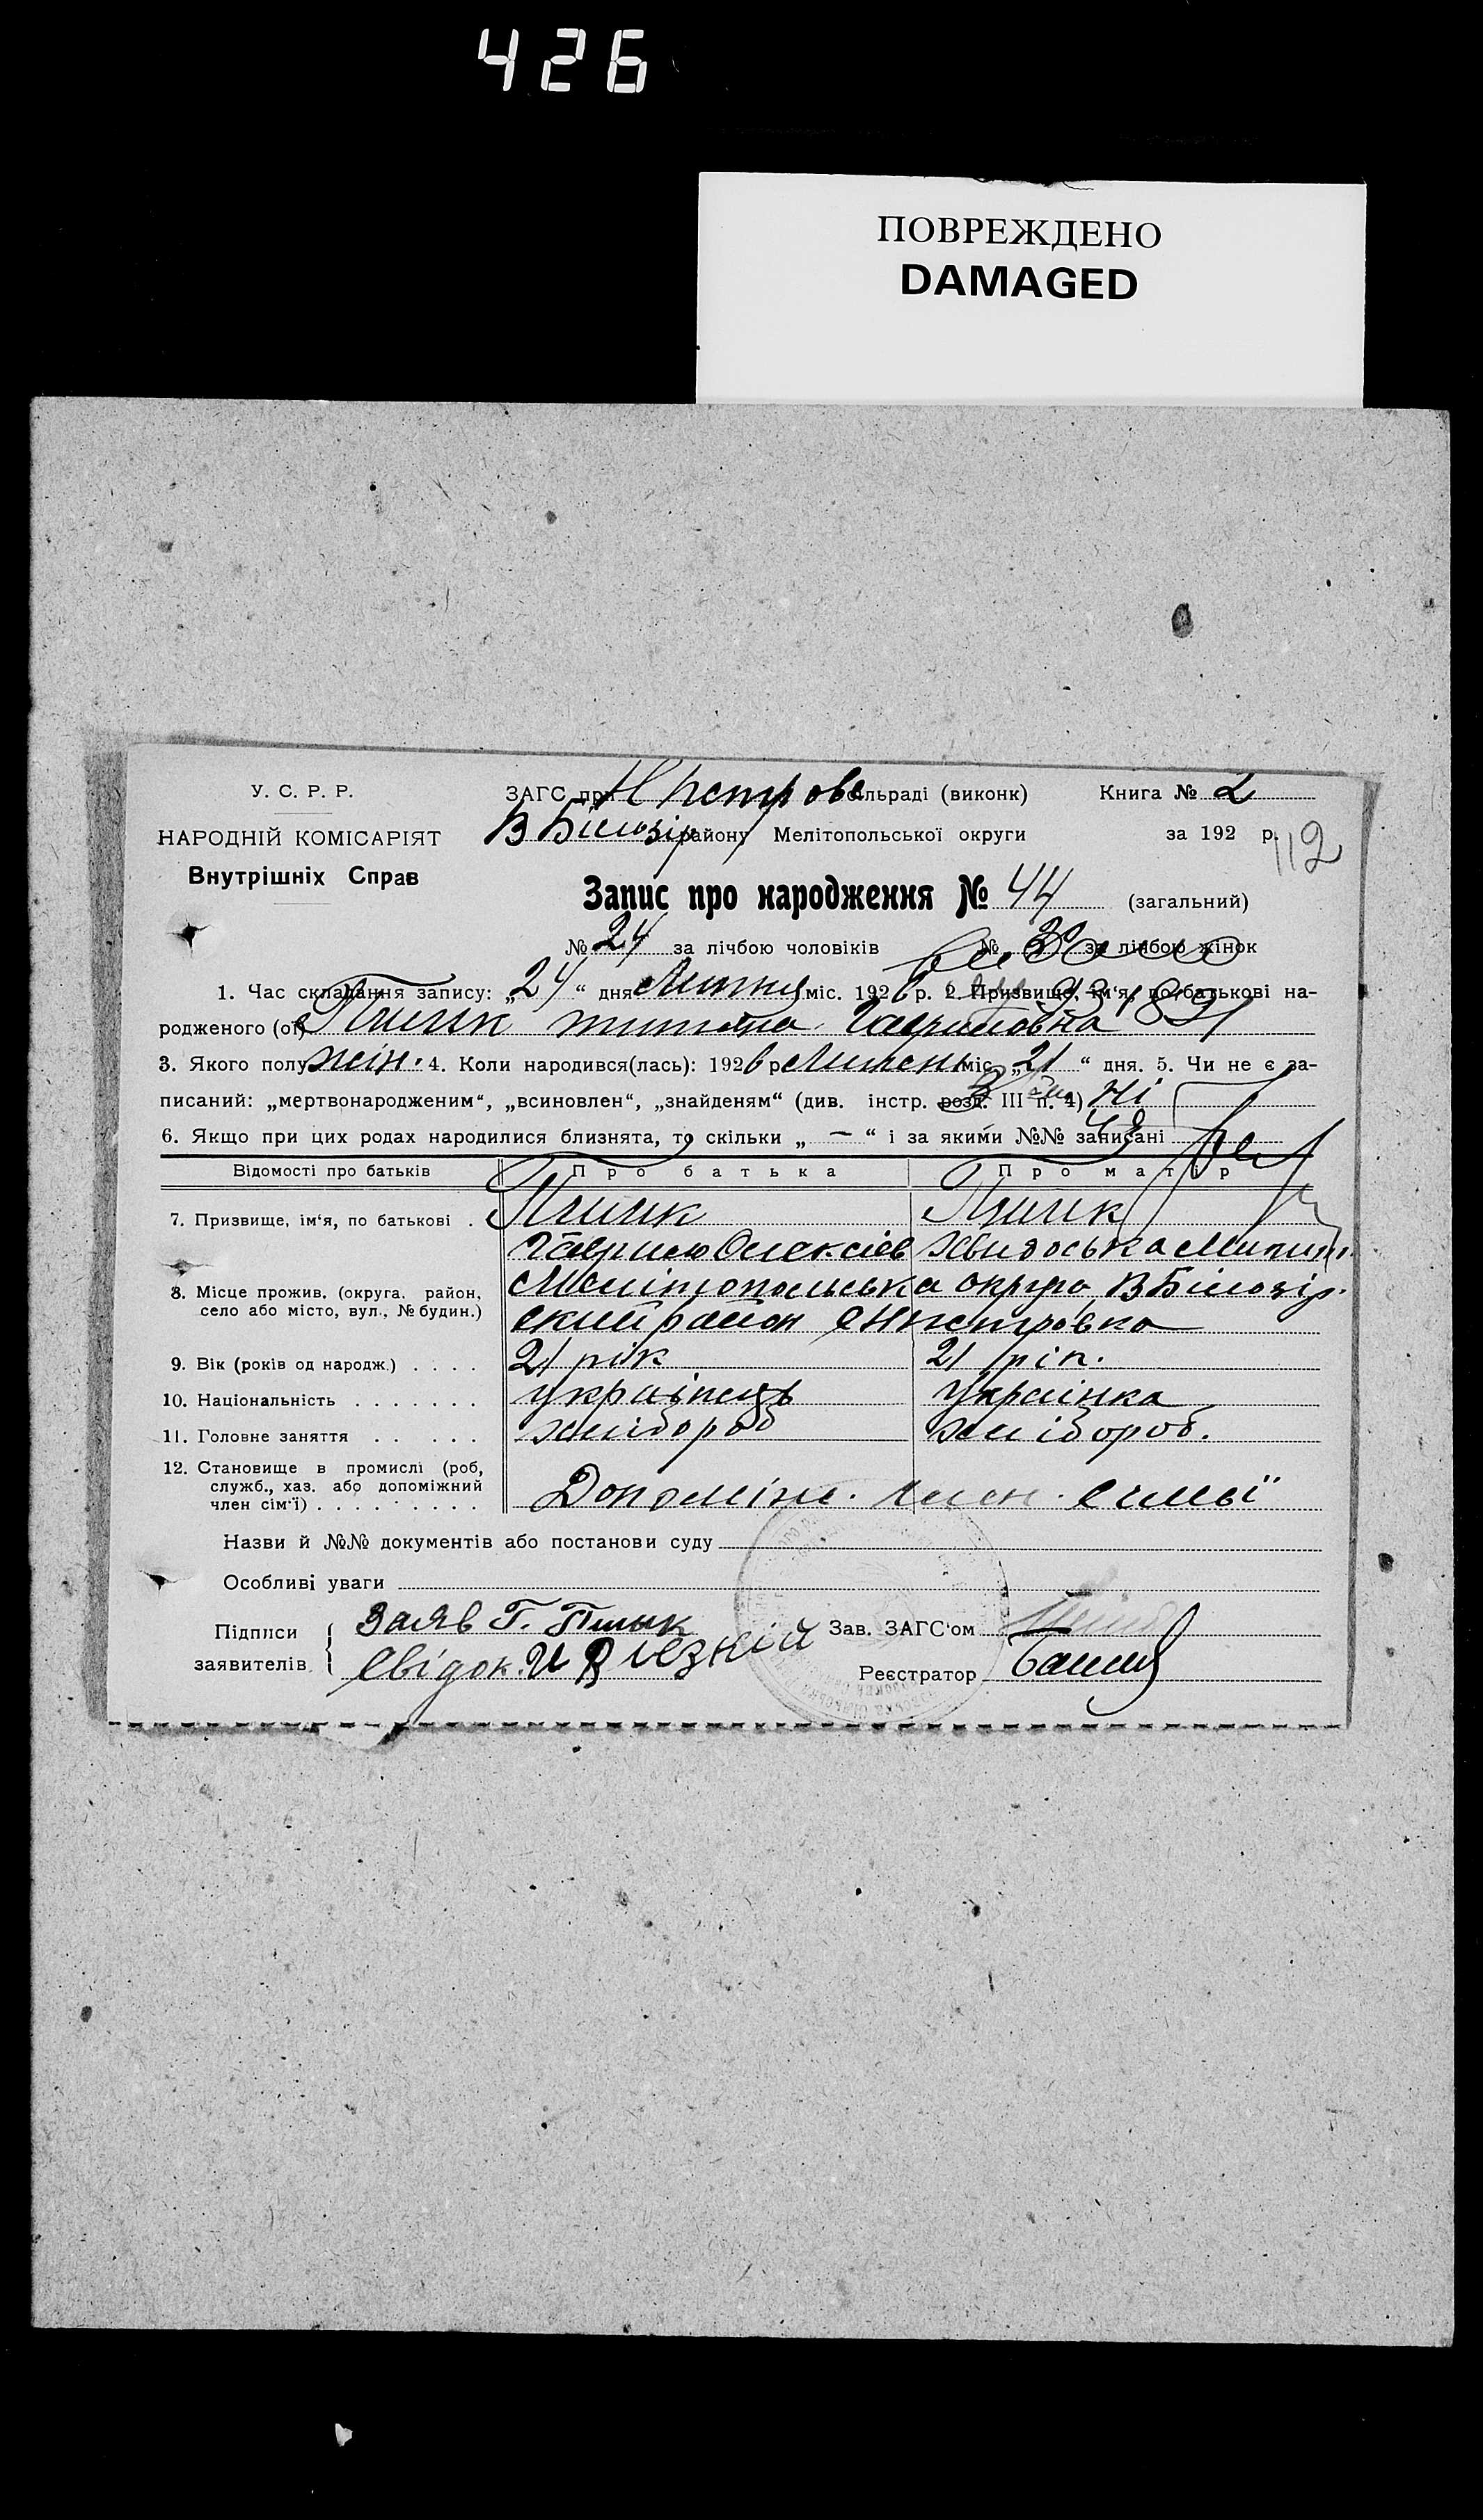 426
ПОВРЕЖДЕНО
DAMAGED
У. С. Р. Р.
НАРОДНІЙ КОМІСАРІЯТ
Внутрішніх Справ
ЗАГС при Н Петров сільраді (виконк)
В Білозір району Мелітопольської округи
Книга № 2
за 192 р.
112
Запис про народження № 44 (загальний)
№ 24 за лічбою чоловіків № 20 за лічбою жінок
1. Час складання запису: „24“ дня Липня міс. 1926 р. 2. Призвище, ім'я, по батькові на-
родженого (ої) Пшик Гавриловна
3. Якого полу жін. 4. Коли народився(лась): 1926 р Липень міс. „21“ дня. 5. Чи не є за-
писаний: „мертвонародженим“, „всиновлен“, „знайденям“ (див. інстр. розд. III п. 4) Ні
6. Якщо при цих родах народилися близнята, то скільки „—“ і за якими №№ записані
Відомості про батьків Про батька Про матір
7. Призвище, ім'я, по батькові . Пшик Пшик
Гаврило Олексіев
8. Місце прожив. (округа, район,
село або місто, вул., № будин.)
Мелітопольська округа В Білозір.
ский район Н Петровка
9. Вік (років од народж.) . . . . 21 рік 21 рік.
10. Національність . . . . . . . українець українка
11. Головне заняття . . . . . хлібороб хлібороб.
12. Становище в промислі (роб,
служб., хаз. або допоміжний
член сім'ї) . . . . . . . . .
Допоміжн. член. симьї
Назви й №№ документів або постанови суду
Особливі уваги
Підписи
заявителів
Заяв Г. Пшык
Свідок.
Зав. ЗАГС'ом
Реєстратор